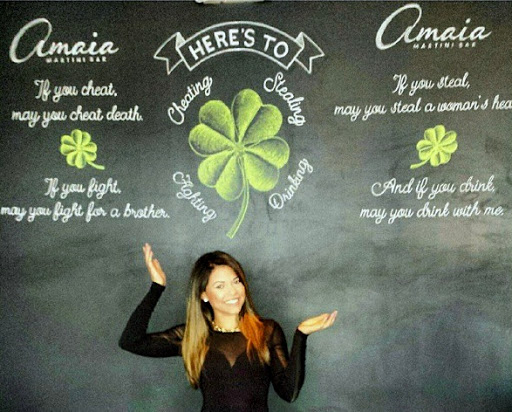 Amaia
MARTINI BAR
If you cheat,
may you cheat death.
If you fight,
may you fight for a brother.
HERE'S TO
Cheating
Stealing
Fighting
Drinking
Amaia
MARTINI BAR
If you steal,
may you steal a woman's hea
And if you drink,
may you drink with me.